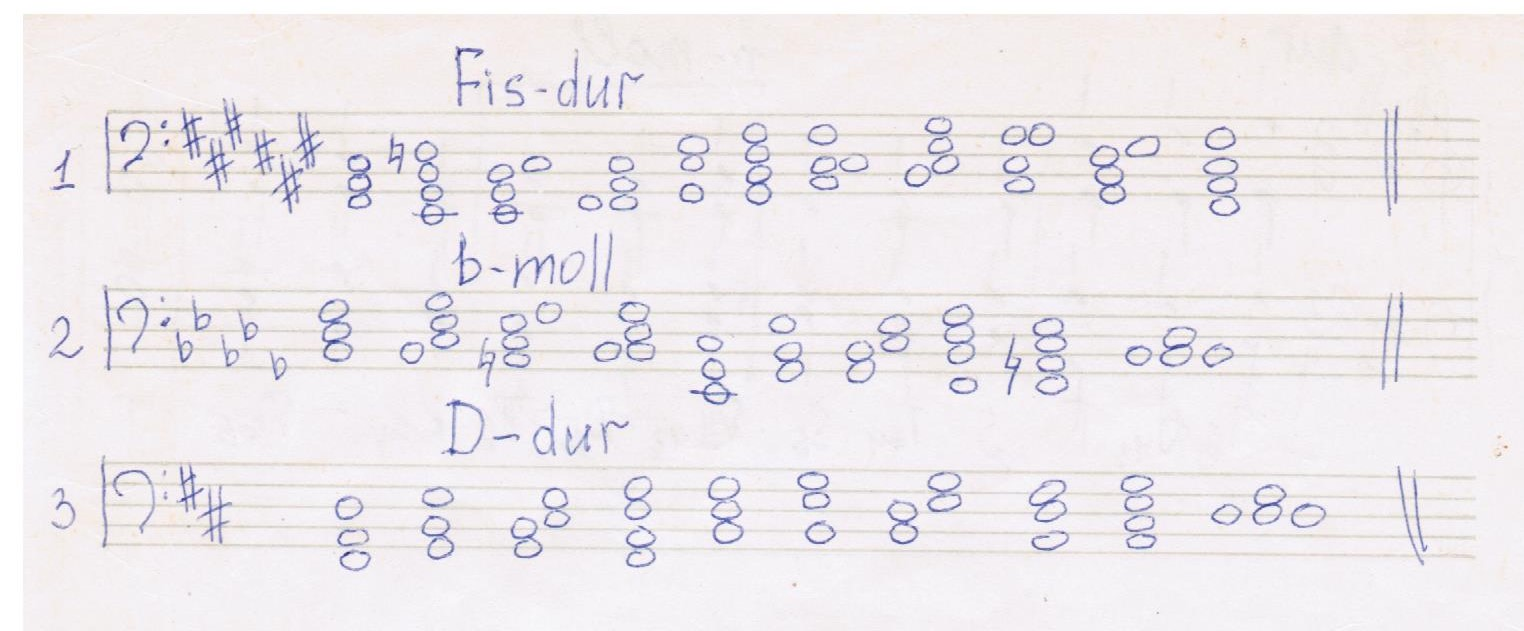 Fis-dur
1
b-moll
2
D-dur
3